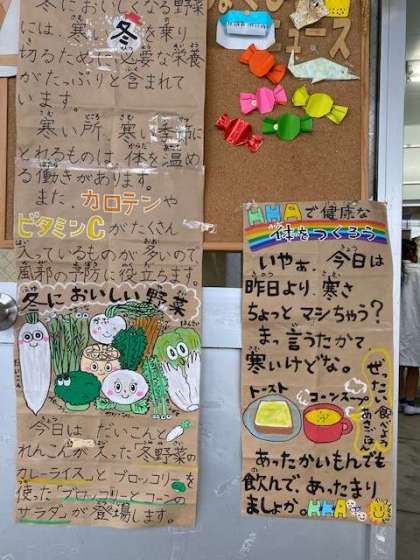 冬においしくなる野菜
には寒い冬を乗り
切るために必要な栄養
がたっぷりと含まれて
います。
寒い所、寒い季節に
とれるものは、体を温め
る働きがあります。
また、カロテンや
ビタミンCがたくさん
入っているものが多いので、
風邪の予防に役立ちます。
冬においしい野菜
はくさい
だいこん
今日は、だいこんと
れんこんが入った「冬野菜の
カレーライス」と「ブロッコリーを
使った「ブロッコリーとコーンの
サラダ」が登場します。
ース
HHAで健康な
体をつくろう
いやぁ、今日は
昨日より寒さ
ちょっとマシちゃう?
まっ言うたかて
寒いけどな。
ぜったい食べよう
あさごはん
トースト
コーンスープ
あったかいもんでも
飲んで、あったまり
ましょか。HHA